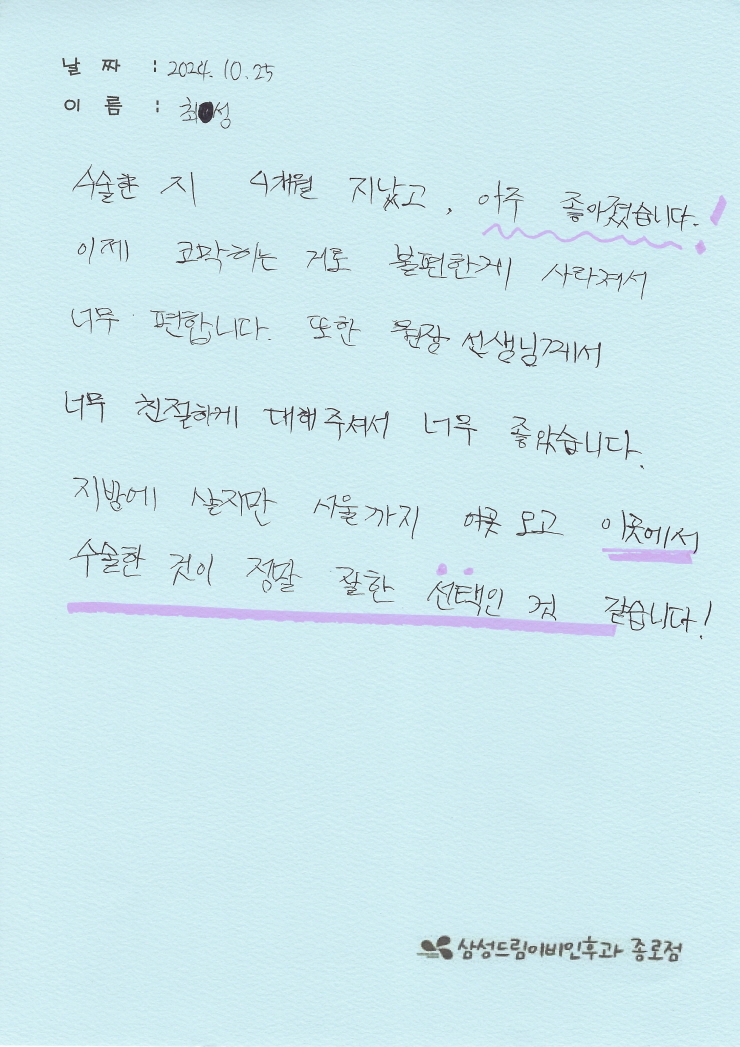 날 짜 : 2024. 10. 25
이 름 : 최 성
수술한 지 4개월 지났고, 아주 좋아졌습니다.!
이제 코막히는 거로 불편한게 사라져서
너무 편합니다. 또한 원장 선생님께서
너무 친절하게 대해주셔서 너무 좋았습니다.
지방에 살지만 서울까지 오고 이곳에서
수술한 것이 정말 잘한 선택인 것 같습니다!
삼성드림이비인후과 종로점